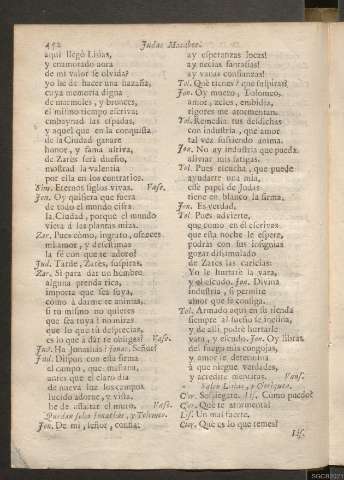 452
Judas Macabeo.
aqui llegò Lisias,
y enamorado aora
de mi valor se olvida?
yo he de hacer una hazaña,
cuya memoria digna
de marmoles, y bronces,
el mismo tiempo escriva:
embaynad las espadas,
y aquel que en la conquista
de la Ciudad ganare
honor, y fama altiva,
de Zarès serà dueño,
mostrad la valentia
por ella en los contrarios.
Sim. Eternos siglos vivas. Vase.
Jon. Oy quisiera que fuera
de todo el mundo cifra
la Ciudad, porque el mundo
viera à tus plantas mias.
Zar. Pues còmo, ingrato, ofreces
mi amor, y desestimas
la fè con que te adoro?
Jud. Tarde, Zarès, suspiras.
Zar. Si para dar un hombre
alguna prenda rica,
importa que sea suya,
còmo à darme te animas,
si tu mismo no quieres
que sea tuya? no miras
que lo que tù desprecias,
es lo que à dàr te obligas? Vase.
Jud. Ha Jonatàs! Jonat. Señor?
Jud. Dispon con esta firma
el campo, que mañana,
antes que el claro dia
de nueva luz los campos
lucido adorne, y vista,
he de assaltar el muro. Vase.
Quedan solos Jonathàs, y Tolomeo.
Jon. De mi, señor, confia:
ay esperanzas locas!
ay necias fantasias!
ay vanas confianzas!
Tol. Què tienes? què suspiras?
Jon. Oy muero, Tolomeo,
amor, zelos, embidia,
rigores me atormentan.
Tol. Remedia tus desdichas
con industria, que amor
tal vez sufriendo anima.
Jon. No ay industria que pueda
aliviar mis fatigas.
Tol. Pues escucha, que puede
ayudarte una mia,
esse papel de Judas
tiene en blanco la firma.
Jon. Es verdad.
Tol. Pues advierte,
que como en èl escrivas
que esta noche le espera,
podràs con sus insignias
gozar dissimulado
de Zarès las caricias:
Yo le hurtarè la vara,
y el escudo. Jon. Divina
industria, si permite
amor que se consiga.
Tol. Armado aqui en su tienda
siempre al sueño se inclina,
y de alli, podrè hurtarle
vara, y escudo. Jon. Oy libras
del fuego mis congojas,
y amor te determina
à que niegue verdades,
y acredite mentiras. Vanse.
Salen Lisias, y Chriqueta.
Lis. Como puedo?
Lis. Un mal fuerte.
Lis.
SGCB2021